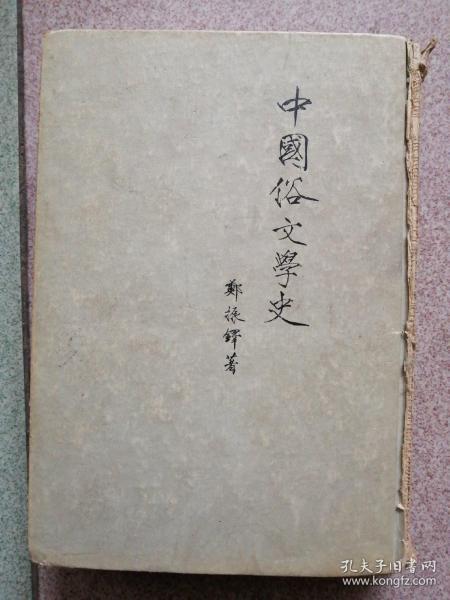 中國俗文學史
鄭振鐸著
孔夫子旧书网
www.kongfz.com